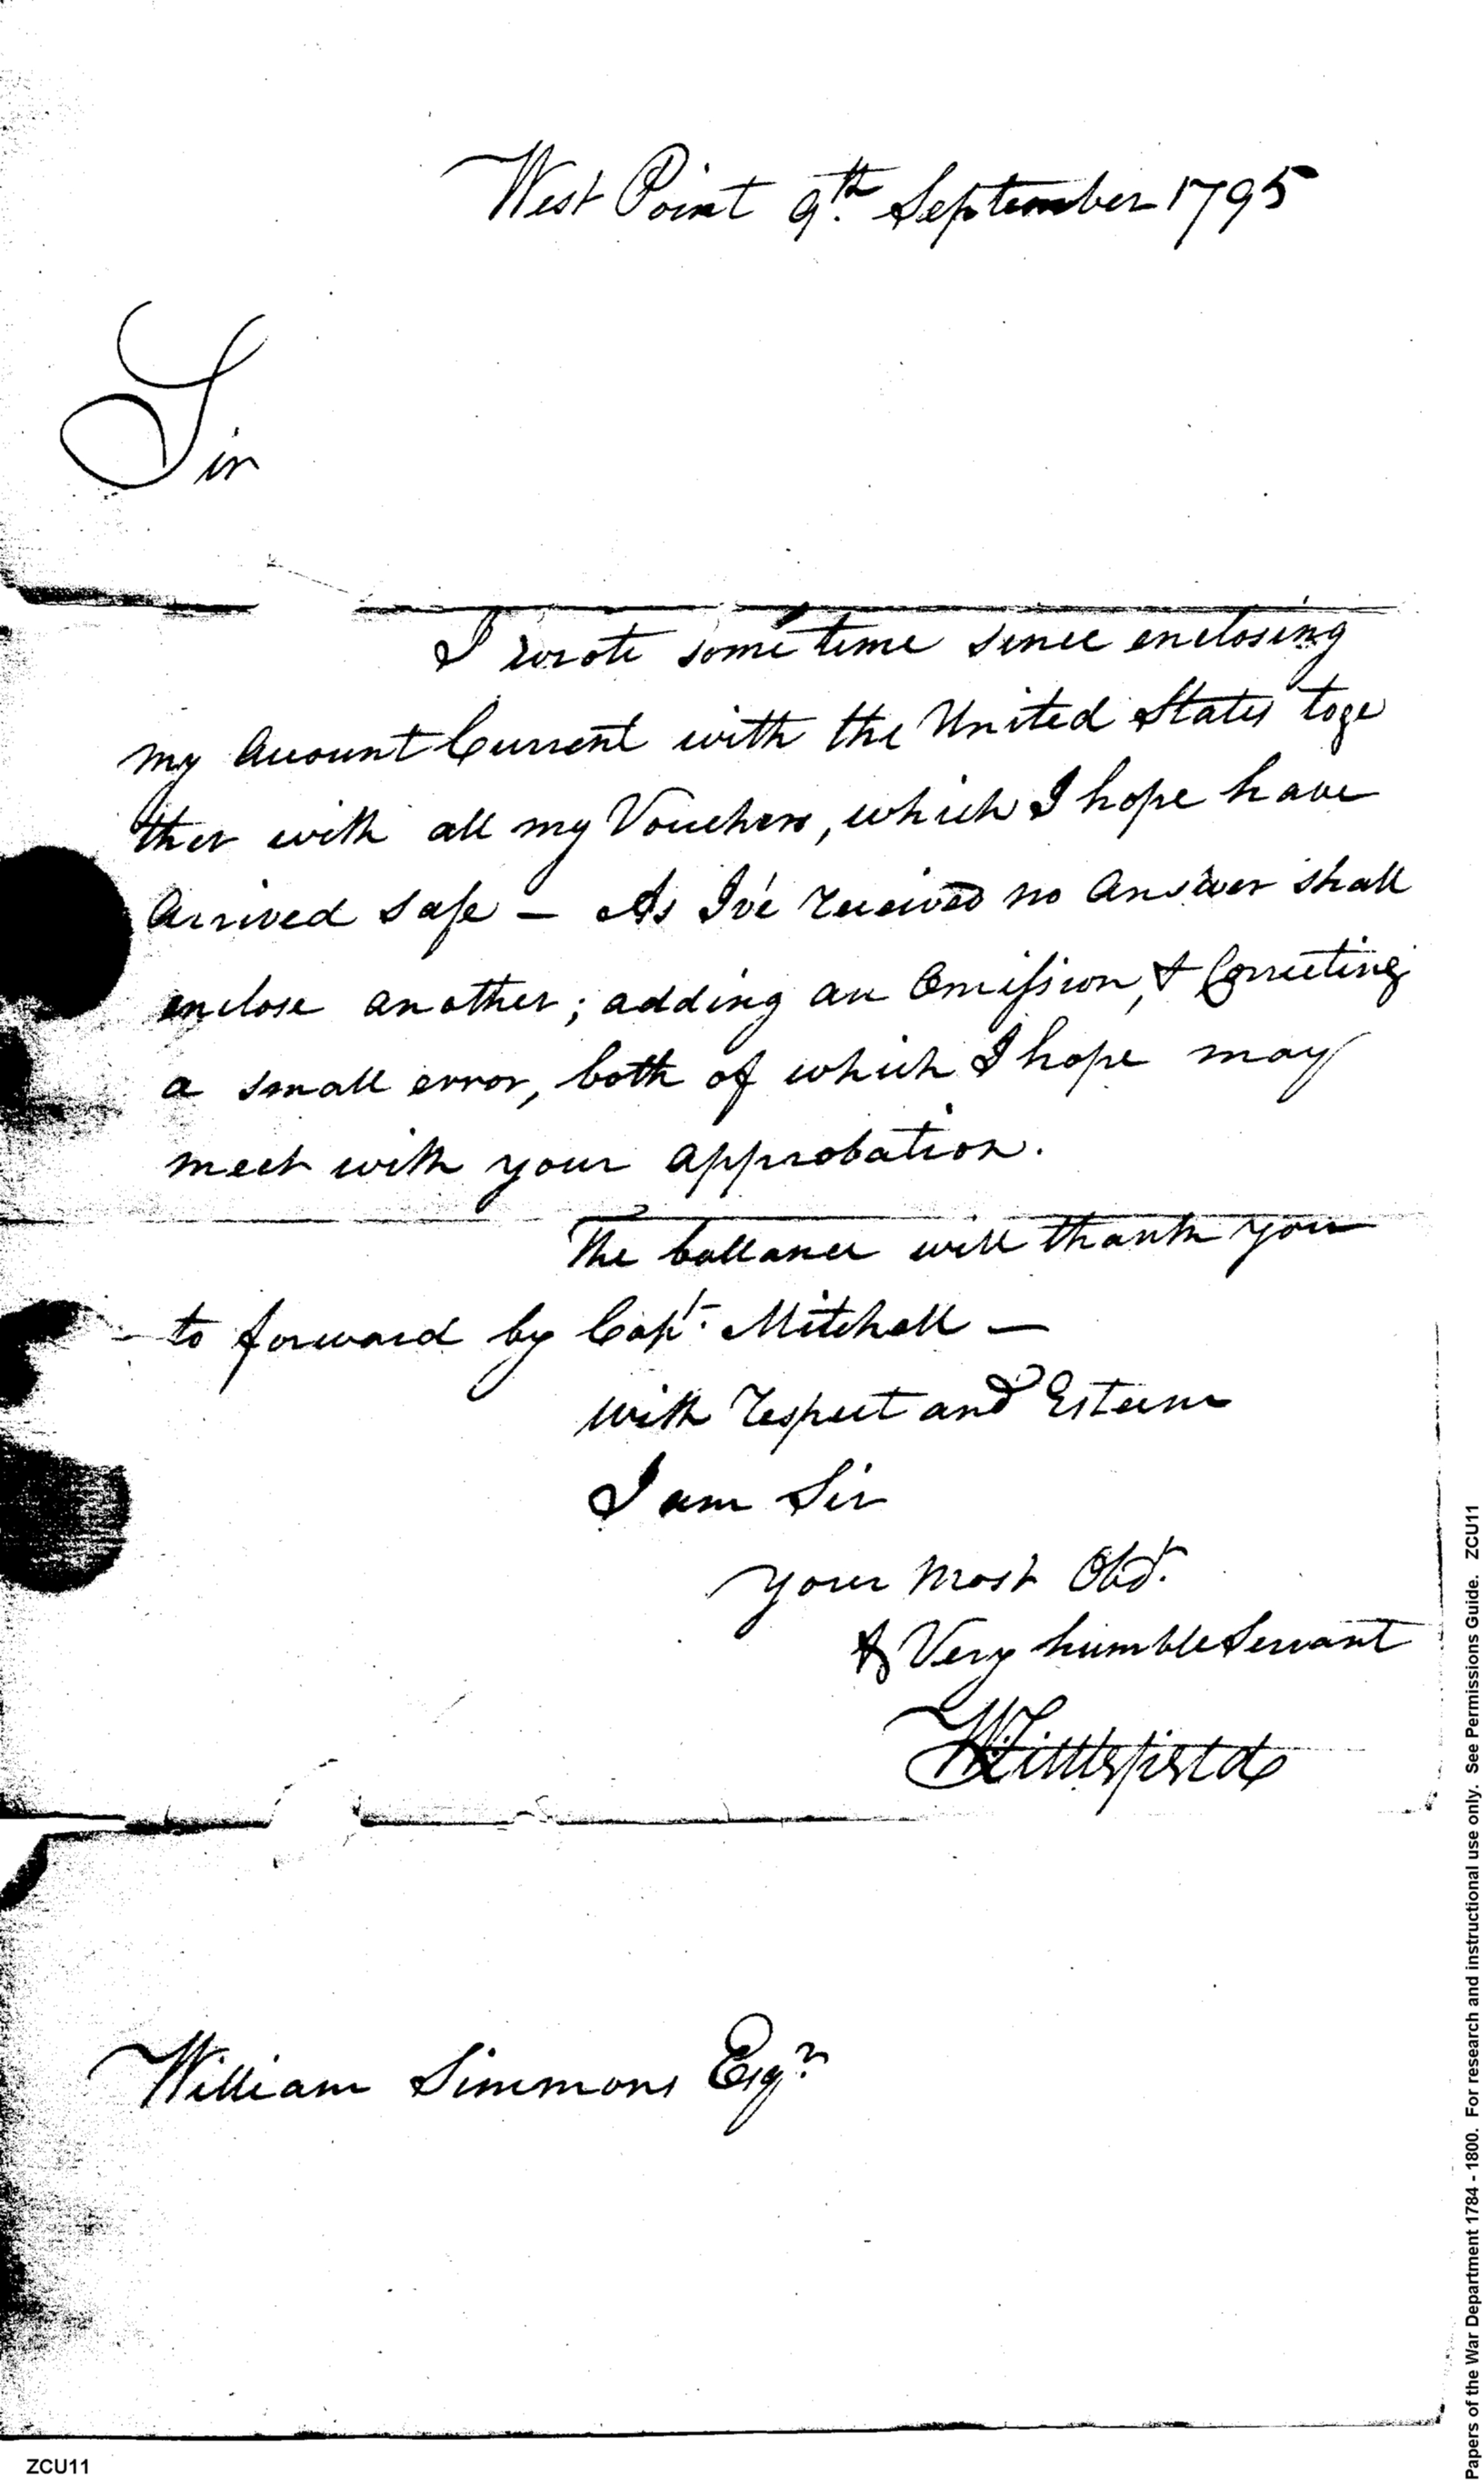 West Point 9th. September 1795
Sir
I wrote some time since enclosing
my Account Current with the United States toge
ther with all my Vouchers, which I hope have
Arrived safe — As I've received no Answer shall
enclose another; adding an Omission, & Correcting
a small error, both of which I hope may
meet with your approbation.
The ballance will thank you
to forward by Capt. Mitchell —
with respect and Esteem
I am Sir
your most Obdt.
& Very humble Servant
W Littlefield
William Simmons Esqr.
ZCU11
Papers of the War Department 1784 - 1800. For research and instructional use only. See Permissions Guide. ZCU11